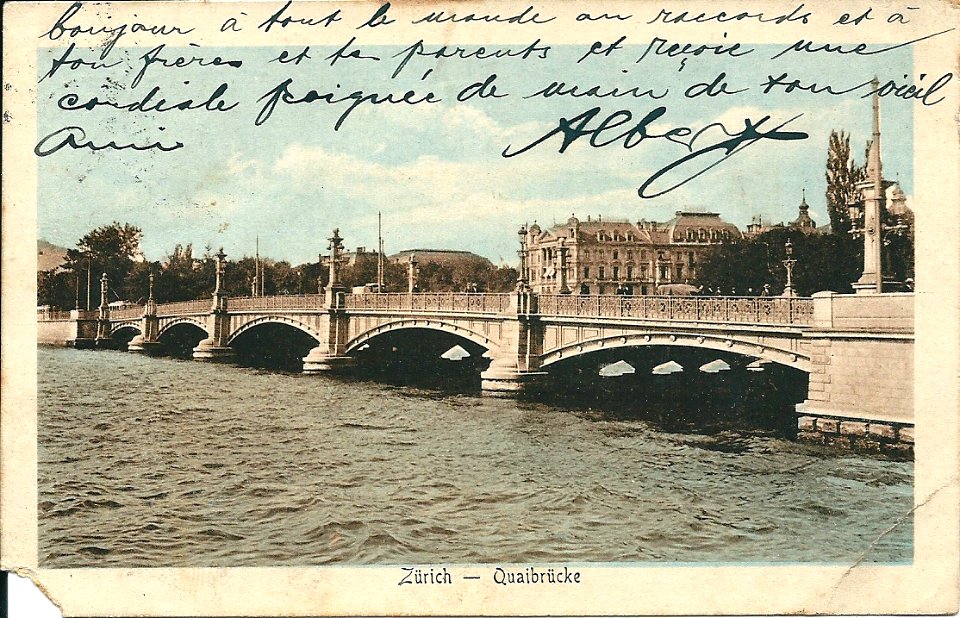 bonjour à tout le monde au raccords et à
ton frères et tes parents et reçoie une
cordiale poignée de main de ton vieil
Ami Albert
Zürich — Quaibrücke